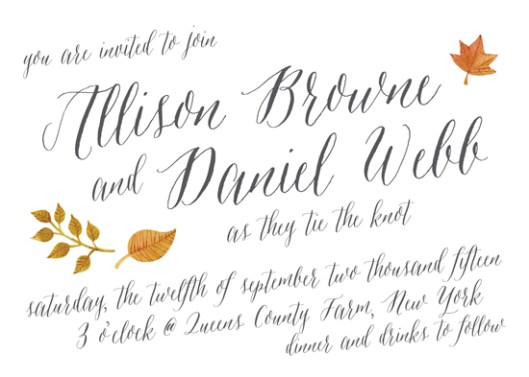 you are invited to join
Allison Browne
and Daniel Webb
as they tie the knot
saturday, the twelfth of september two thousand fifteen
3 o'clock @ Queens County Farm, New York
dinner and drinks to follow